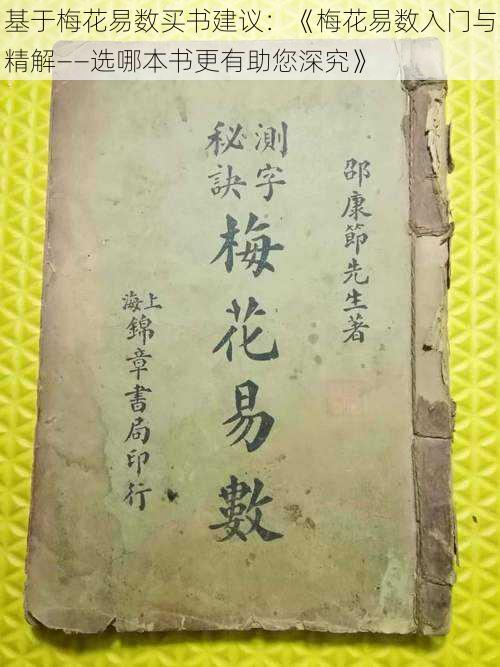 基于梅花易数买书建议：《梅花易数入门与
精解——选哪本书更有助您深究》
邵康節先生著
測字
秘訣
梅花易數
上海
錦章書局印行